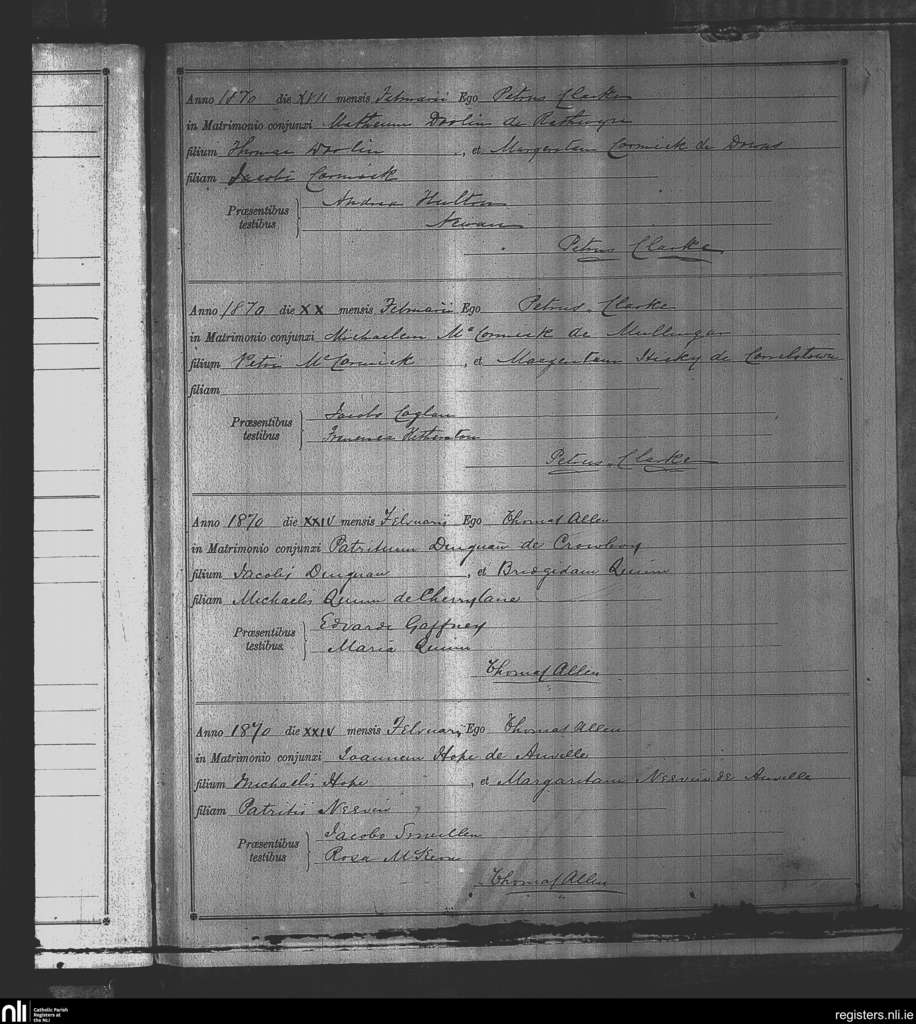 Anno 1870 die XVII mensis Februarii Ego Petrus Clarke
in Matrimonio conjunxi Matheum Doolin de Rathwyre
filium Thomae Doolin, et Margeretam Cormick de Downs
filiam Jacobi Cormick
Præsentibus testibus
Andrea Hulton
Petrus Clarke
Anno 1870 die XX mensis Februarii Ego Petrus Clarke
in Matrimonio conjunxi Michaelem McCormick de Mullingar
filium Petri McCormick, et Margeretam de
filiam
Præsentibus testibus
Jacobo Coglan
Petrus Clarke
Anno 1870 die XXIV mensis Februarii Ego Thomas Allen
in Matrimonio conjunxi Patritium Dungan de
filium Jacobis Dungan, et Bridgidam Quinn
filiam Michaelis Quinn de Cherrylane
Præsentibus testibus
Edvardi Gaffney
Maria Quinn
Thomas Allen
Anno 1870 die XXIV mensis Februarii Ego Thomas Allen
in Matrimonio conjunxi Joannem Hope de
filium Michaelis Hope, et Margaritam Nervin de
filiam Patritii Nervin
Præsentibus testibus
Jacobo Smullen
Rosa McKeon
Thomas Allen
nli Catholic Parish
Registers at
the NLI
registers.nli.ie